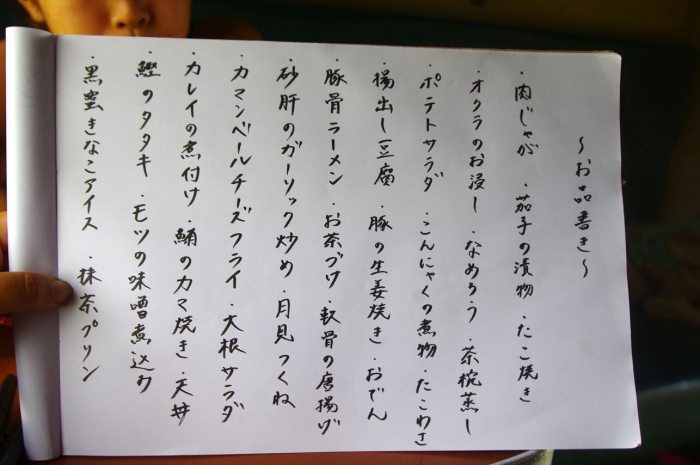 ～お品書き～
・肉じゃが ・茄子の漬物 ・たこ焼き
・オクラのお浸し ・なめろう ・茶椀蒸し
・ポテトサラダ ・こんにゃくの煮物 ・たこわさ
・揚出し豆腐 ・豚の生姜焼き ・おでん
・豚骨ラーメン ・お茶づけ ・軟骨の唐揚げ
・砂肝のガーリック炒め ・月見つくね
・カマンベールチーズフライ ・大根サラダ
・カレイの煮付け ・鮪のカマ焼き ・天丼
・鰹のタタキ ・モツの味噌煮込み
・黒蜜きなこアイス ・抹茶プリン